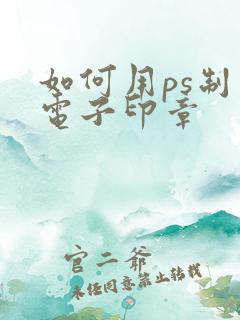 如何用ps制
電子印章
官二爷
未经同意禁止转载